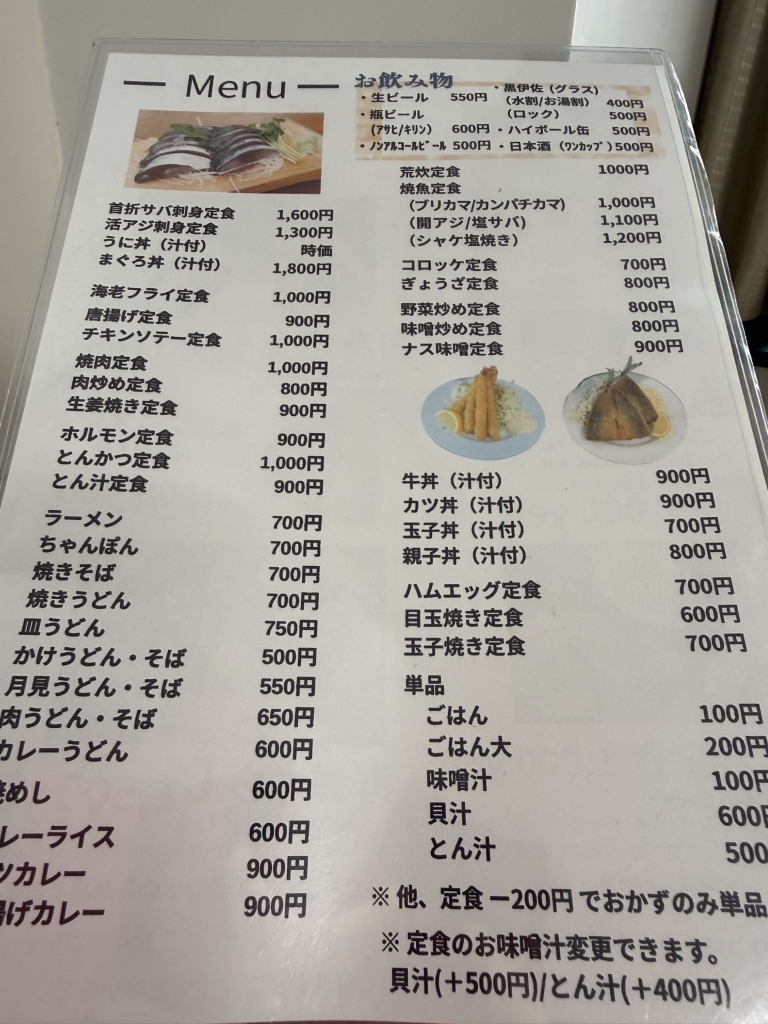 Menu
首折サバ刺身定食 1,600円
活アジ刺身定食 1,300円
うに丼（汁付） 時価
まぐろ丼（汁付） 1,800円
海老フライ定食 1,000円
唐揚げ定食 900円
チキンソテー定食 1,000円
焼肉定食 1,000円
肉炒め定食 800円
生姜焼き定食 900円
ホルモン定食 900円
とんかつ定食 1,000円
とん汁定食 900円
ラーメン 700円
ちゃんぽん 700円
焼きそば 700円
焼きうどん 700円
皿うどん 750円
かけうどん・そば 500円
月見うどん・そば 550円
肉うどん・そば 650円
カレーうどん 600円
めし 600円
レーライス 600円
ツカレー 900円
揚げカレー 900円
お飲み物
・生ビール 550円
・瓶ビール
（アサヒ/キリン） 600円
・ノンアルコールビール 500円
・黒伊佐（グラス）
（水割/お湯割） 400円
（ロック） 500円
・ハイボール缶 500円
・日本酒（ワンカップ）500円
荒炊定食 1000円
焼魚定食
（ブリカマ/カンパチカマ) 1,000円
（開アジ/塩サバ） 1,100円
（シャケ塩焼き） 1,200円
コロッケ定食 700円
ぎょうざ定食 800円
野菜炒め定食 800円
味噌炒め定食 800円
ナス味噌定食 900円
牛丼（汁付） 900円
カツ丼（汁付） 900円
玉子丼（汁付） 700円
親子丼（汁付） 800円
ハムエッグ定食 700円
目玉焼き定食 600円
玉子焼き定食 700円
単品
ごはん 100円
ごはん大 200円
味噌汁 100円
貝汁 600円
とん汁 500
※ 他、定食 ー200円 でおかずのみ単品
※ 定食のお味噌汁変更できます。
貝汁(＋500円)/とん汁(＋400円)